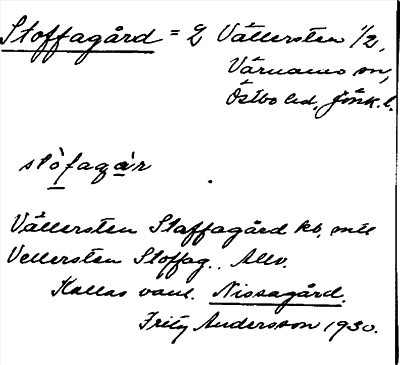 Stoffagård = 2 Vällersten 1/2,
Värnamo sn,
Östbo hd, Jönk. l.
stòfagàr
Vällersten Staffagård kb, mtl
Vellersten Stoffag., Allv.
Kallas vanl. Nissagård.
Fritz Andersson 1930.